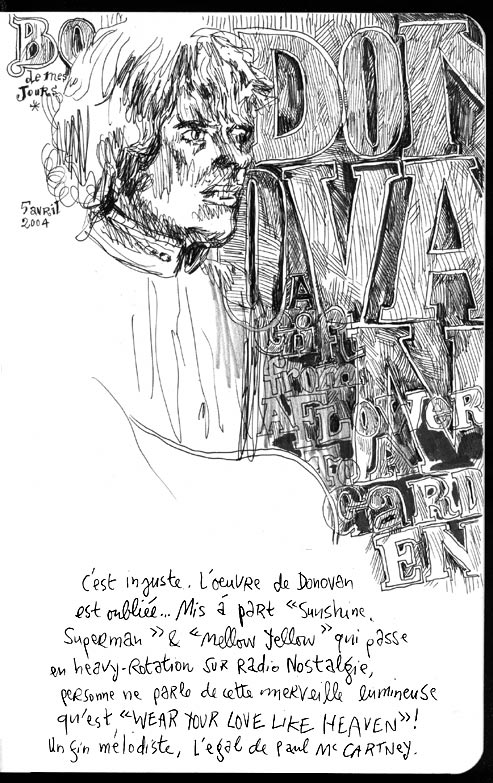 BO
de mes
Jours
*
5 avril
2004
DON
OVA
N
A
Gift
from
A FLOWER
to A
GARD
EN
C'est injuste. L'oeuvre de Donovan
est oubliée... Mis à part "Sunshine
Superman" & "Mellow Yellow" qui passe
en heavy-Rotation sur Radio Nostalgie,
personne ne parle de cette merveille lumineuse
qu'est "WEAR YOUR LOVE LIKE HEAVEN"!
Un fin mélodiste, L'egal de Paul McCARTNEY.